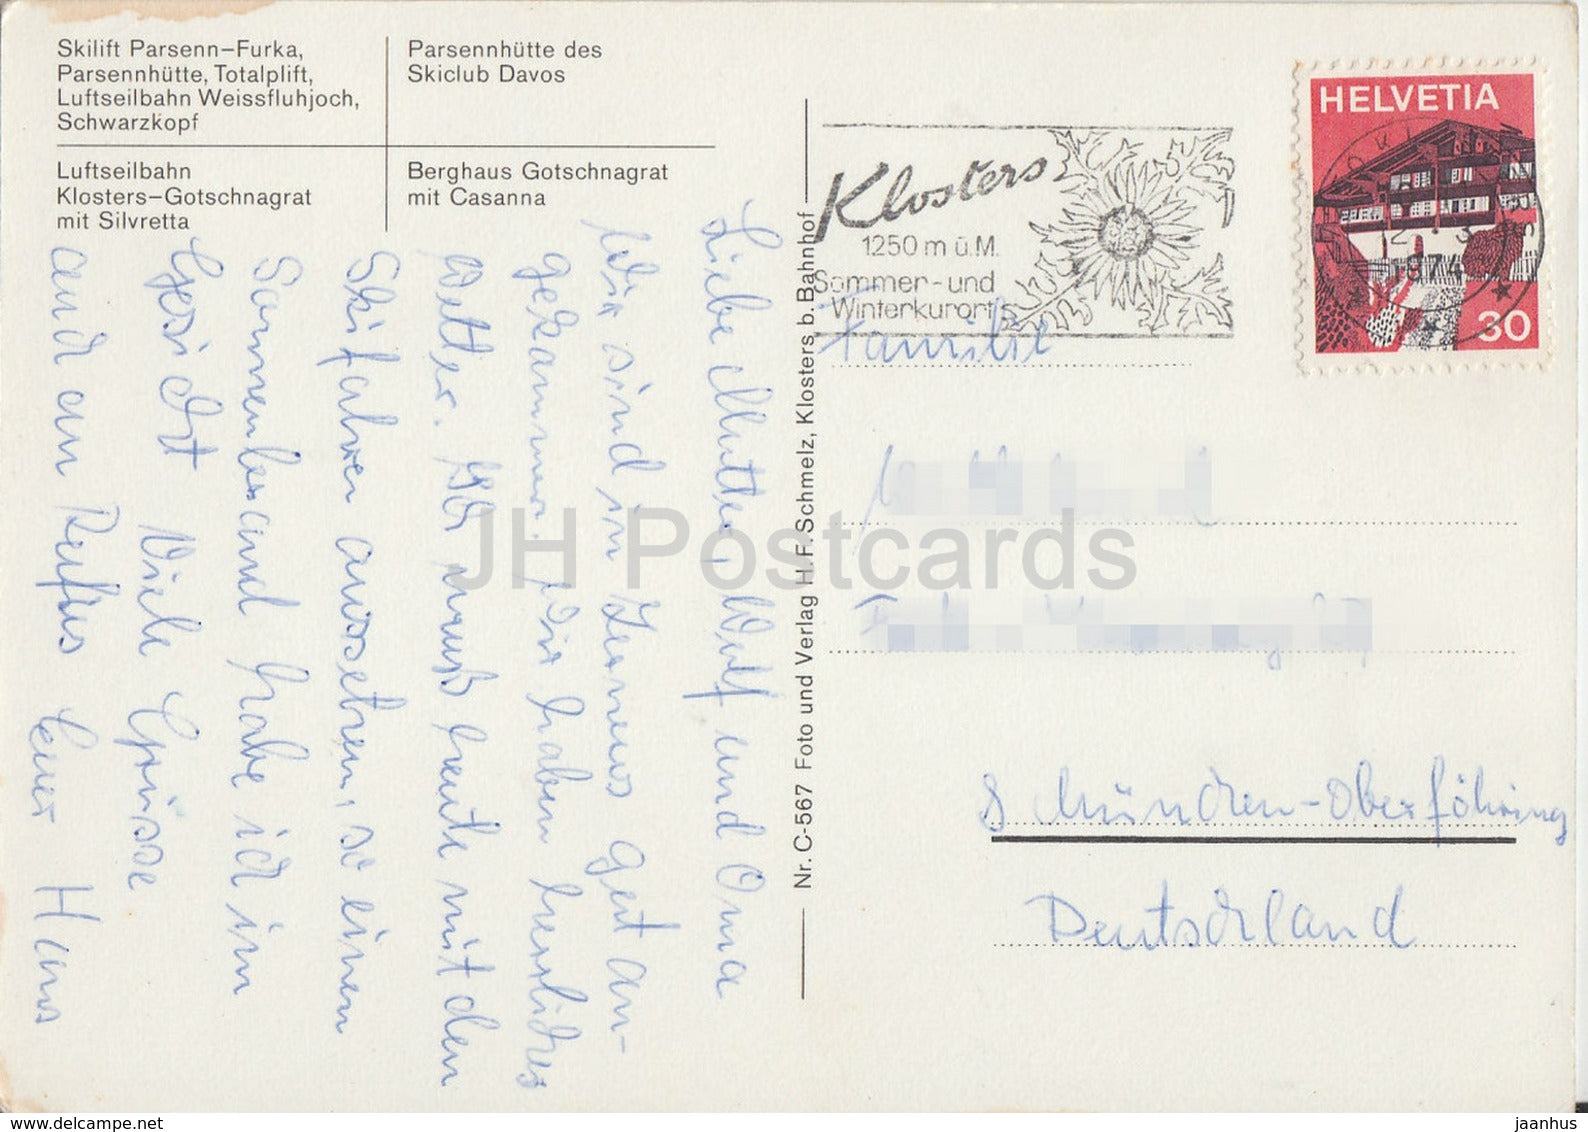 Skilift Parsenn–Furka,
Parsennhütte, Totalplift,
Luftseilbahn Weissfluhjoch,
Schwarzkopf
Parsennhütte des
Skiclub Davos
Luftseilbahn
Klosters–Gotschnagrat
mit Silvretta
Berghaus Gotschnagrat
mit Casanna
Liebe Mutter, Wolf und Oma
Wir sind in gut an-
gekommen. Wir haben herrliches
Wetter. Ich muß heute mit dem
Skifahren aussetzen, so einen
Sonnenbrand habe ich im
Gesicht Viele Grüsse
auch an Rufus Euer Hans
Nr. C-567 Foto und Verlag H. F. Schmelz, Klosters b. Bahnhof
Klosters
1250 m ü.M.
Sommer- und
Winterkurort
HELVETIA
12. 3.
1974
30
Familie
8 München-Oberföhring
Deutschland
JH Postcards
delcampe.net
jaanhus